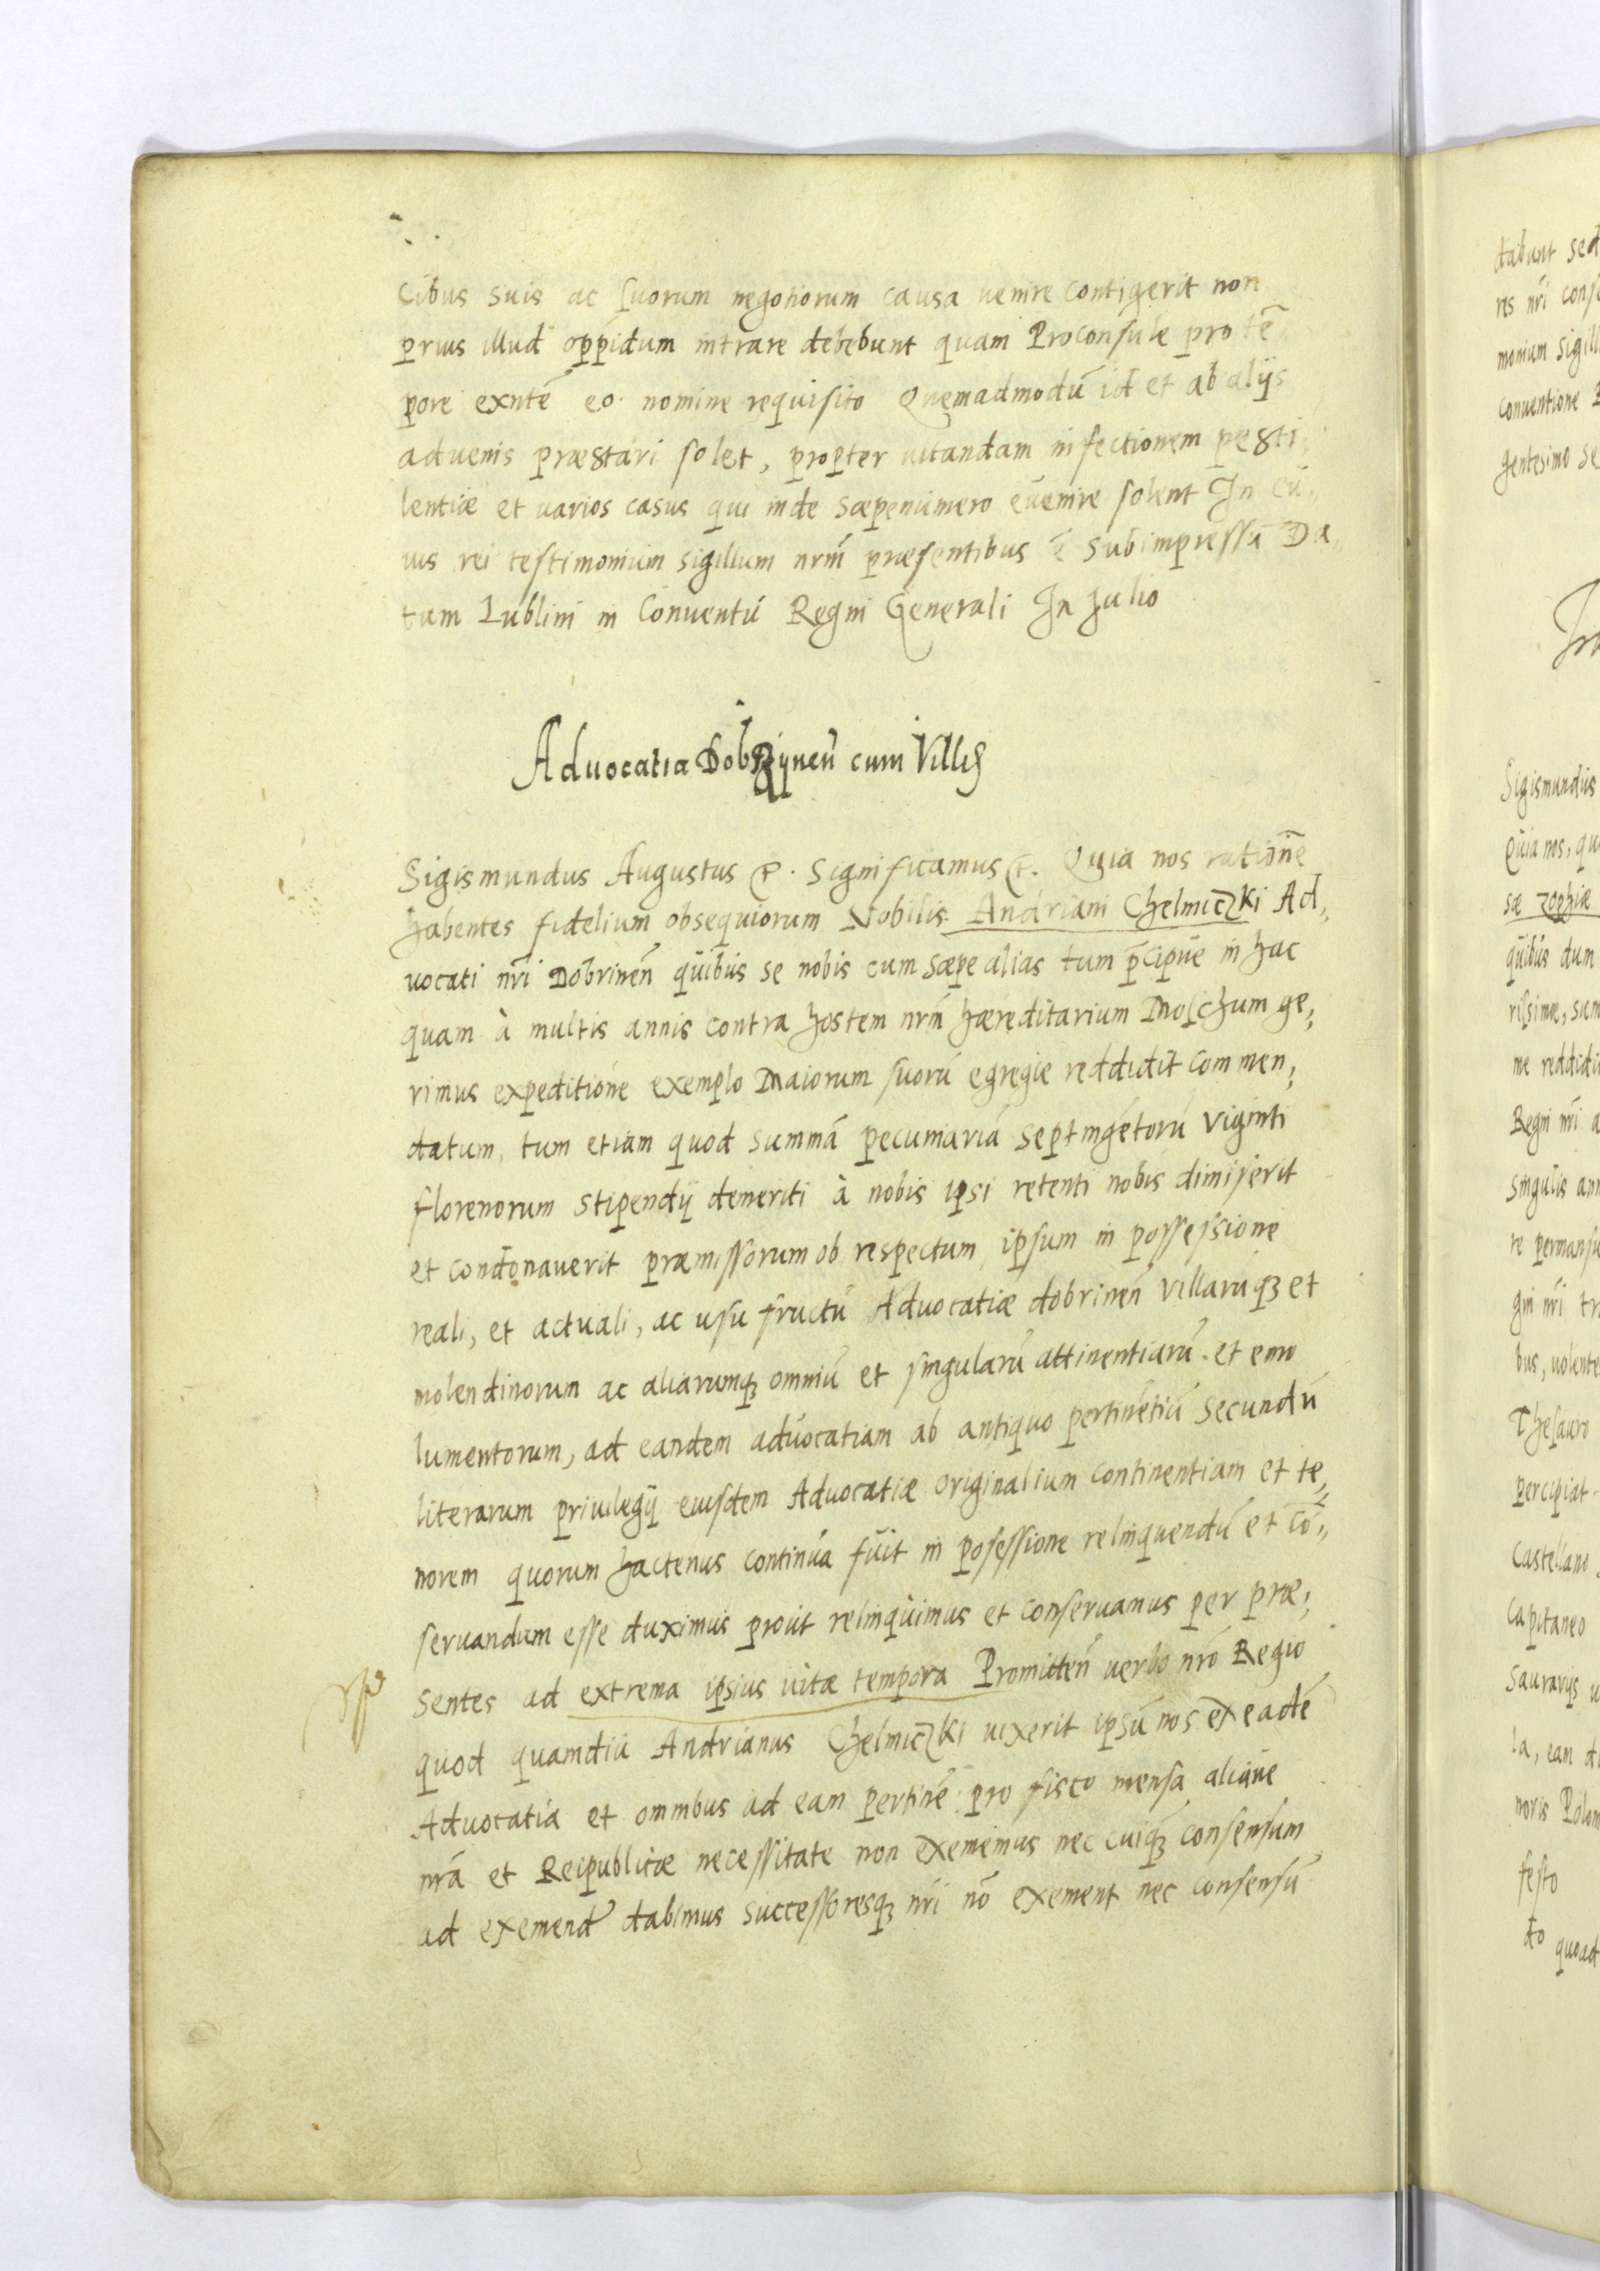 cibus suis ac suorum negotiorum causa uenire contigerit non
prius illud oppidum intrare debebunt quam Proconsule pro tē
pore exntē eo nomine requisito Quemadmodū id et ab alijs
aduenis præstari solet, propter uitandam infectionem pesti
lentiæ et uarios casus qui inde sæpenumero euenire solent In cu„
ius rei testimonium sigillum nrm̄ præsentibus ē subimpressū Da„
tum Lublini in Conuentu Regni Generali In Julio
Aduocatia Dobrzynen̄ cum Villis
Sigismundus Augustus etc. Significamus etc. Quia nos rationē
habentes fidelium obsequiorum Nobilis Andriani Chelmiczki Ad„
uocati nr̄i Dobrinen̄ quibus se nobis cum sæpe alias tum p̄cipue in hac
quam à multis annis contra hostem nrm̄ hæreditarium Moschum ge;
rimus expeditione exemplo Maiorum suorū egregie reddidit commen;
datum, tum etiam quod summā pecuniariā septingētorū viginti
florenorum stipendij demeriti à nobis ipsi retenti nobis dimiserit
et condonauerit præmissorum ob respectum ipsum in possessione
reali, et actuali, ac usu fructu Aduocatiæ dobrinen̄ Villaruqȝ et
molendinorum ac aliarumqȝ omniū et singularū attinentiarū et emo
lumentorum, ad eandem aduocatiam ab antiquo pertinētiū secundū
literarum priuilegij eiusdem Aduocatiæ originalium continentiam et te„
norem quorum hactenus continua fuit in posessione relinquendū et cō„
seruandum esse duximus prout relinquimus et conseruamus per præ;
sentes ad extrema ipsius uitæ tempora Promitten̄ uerbo nr̄o Regio
quod quamdiu Andrianus Chelmiczki uixerit ipsū nos ex eadē
Aduocatia et omnibus ad eam pertinē pro fisco mensa aliqūe
nrā et Reipublicæ necessitate non exememus nec cuiqȝ consensum
ad exemend dabimus successoresqȝ nr̄i nō exement nec consensū
dabunt sed
res nr̄i cons
monium sigill
conuentione
gentesimo se
Sigismundus
Quia nos, qu
sæ Zophiæ
quibus dum
rissimæ, sum
me reddidi
Regni nr̄i a
singulis ann
re permansu
gni nr̄i tr
bus, uolente
Thesauro
percipiat
Castellano
Capitaneo
Saurarijs u
la, eam di
noris Polon
festo
do quoad